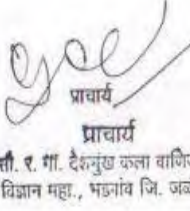 प्राचार्य
प्राचार्य
सौ. र. ना. देशमुख कला वाणिज
विज्ञान महा., भडगांव जि. जळ